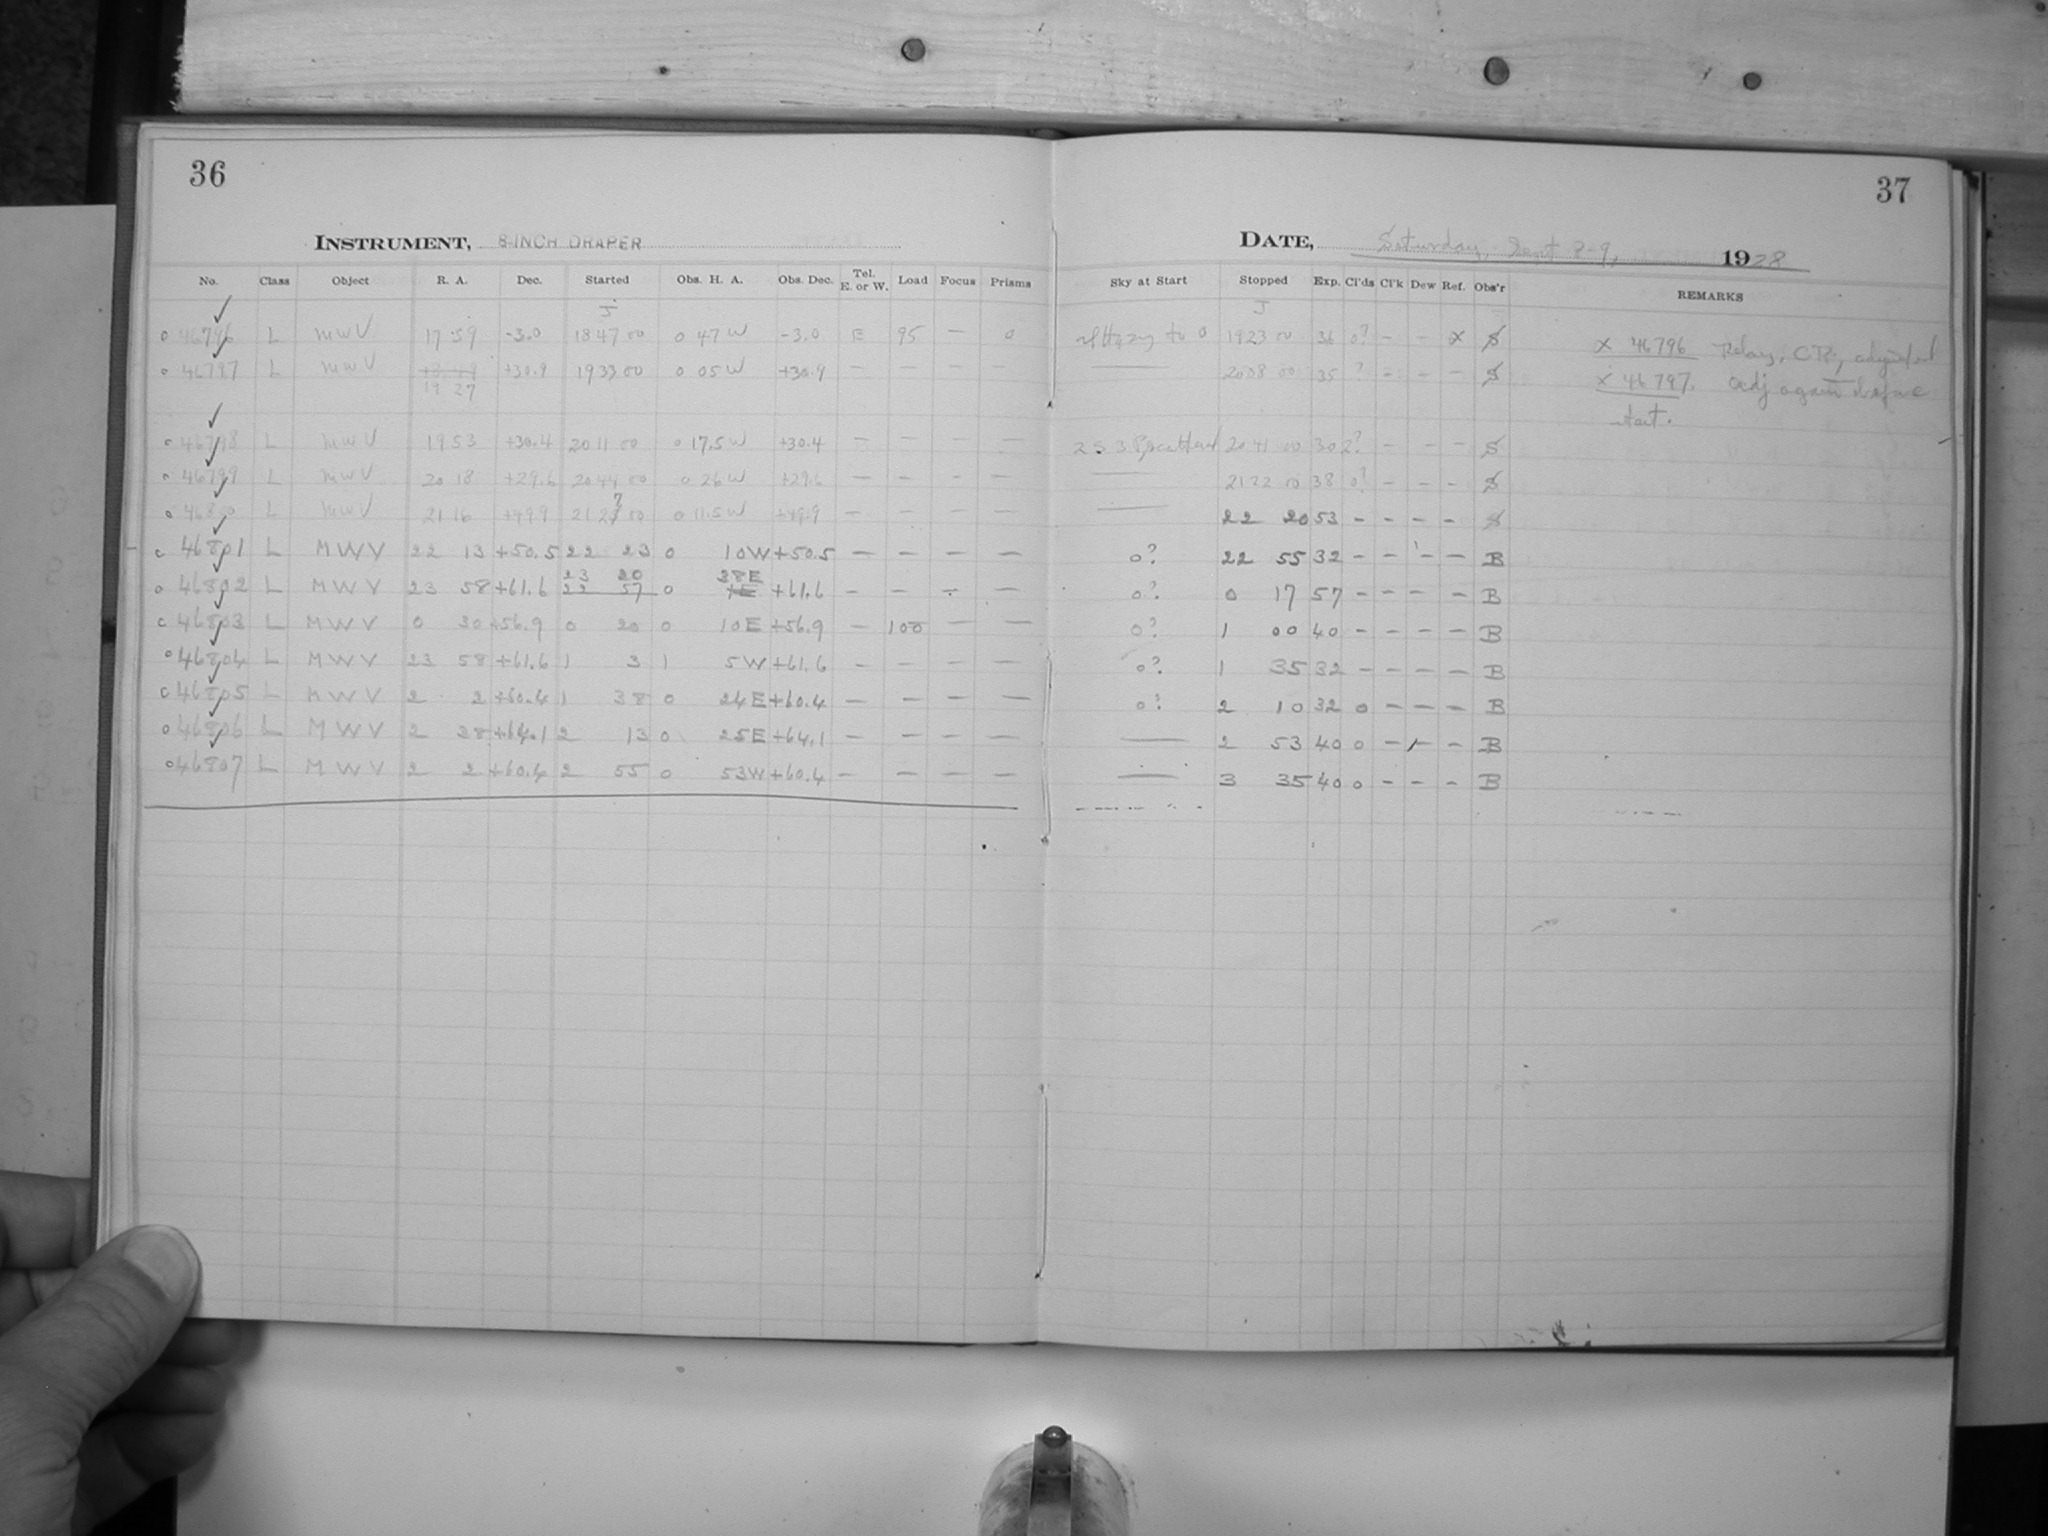 36
37
INSTRUMENT, 8-INCH DRAPER
DATE, Saturday, Sept 8-9, 1928
No. Class Object R. A. Dec. Started Obs. H. A. Obs. Dec. Tel. E. or W. Load Focus Prisms Sky at Start Stopped Exp. Cl'ds Cl'k Dew Ref. Obs'r REMARKS
J J
o 46796 L MWV 17 59 -3.0 18 47 00 0 47 W -3.0 E 95 — 0 Hazy to 0 19 23 00 36 0? - - x S x 46796 Relay, adjusted
o 46797 L MWV +30.9 19 33 00 0 05 W +30.9 — — — — —— 20 08 00 35 ? - - - S x 46797. adj again before
19 27
start.
o 46798 L MWV 19 53 +30.4 20 11 00 0 17.5 W +30.4 — — — — 20 41 00 30 2? - - - S
46799 L MWV 20 18 +29.6 20 44 00 0 26 W +29.6 — — — — —— 21 22 00 38 0? - - - S
o 46800 L MWV 21 16 +49.9 21 27 00 0 11.5 W +49.9 — — — — —— 22 20 53 - - - - S
46801 L MWV 22 13 +50.5 22 23 0 10W +50.5 — — — — 0? 22 55 32 - - - - B
23 20 38E
o 46802 L MWV 23 58 +61.6 22 57 0 +61.6 — — — — 0? 0 17 57 - - - - B
46803 L MWV 0 30 +56.9 0 20 0 10E +56.9 — 100 — — 0? 1 00 40 - - - - B
o 46804 L MWV 23 58 +61.6 1 3 1 5W +61.6 — — — — 0? 1 35 32 - - - - B
46805 L MWV 2 2 +60.4 1 38 0 24E +60.4 — — — — 0? 2 10 32 0 - - - B
o 46806 L MWV 2 38 +64.1 2 13 0 25E +64.1 — — — — —— 2 53 40 0 - - - B
o 46807 L MWV 2 2 +60.4 2 55 0 53W +60.4 — — — — —— 3 35 40 0 - - - B